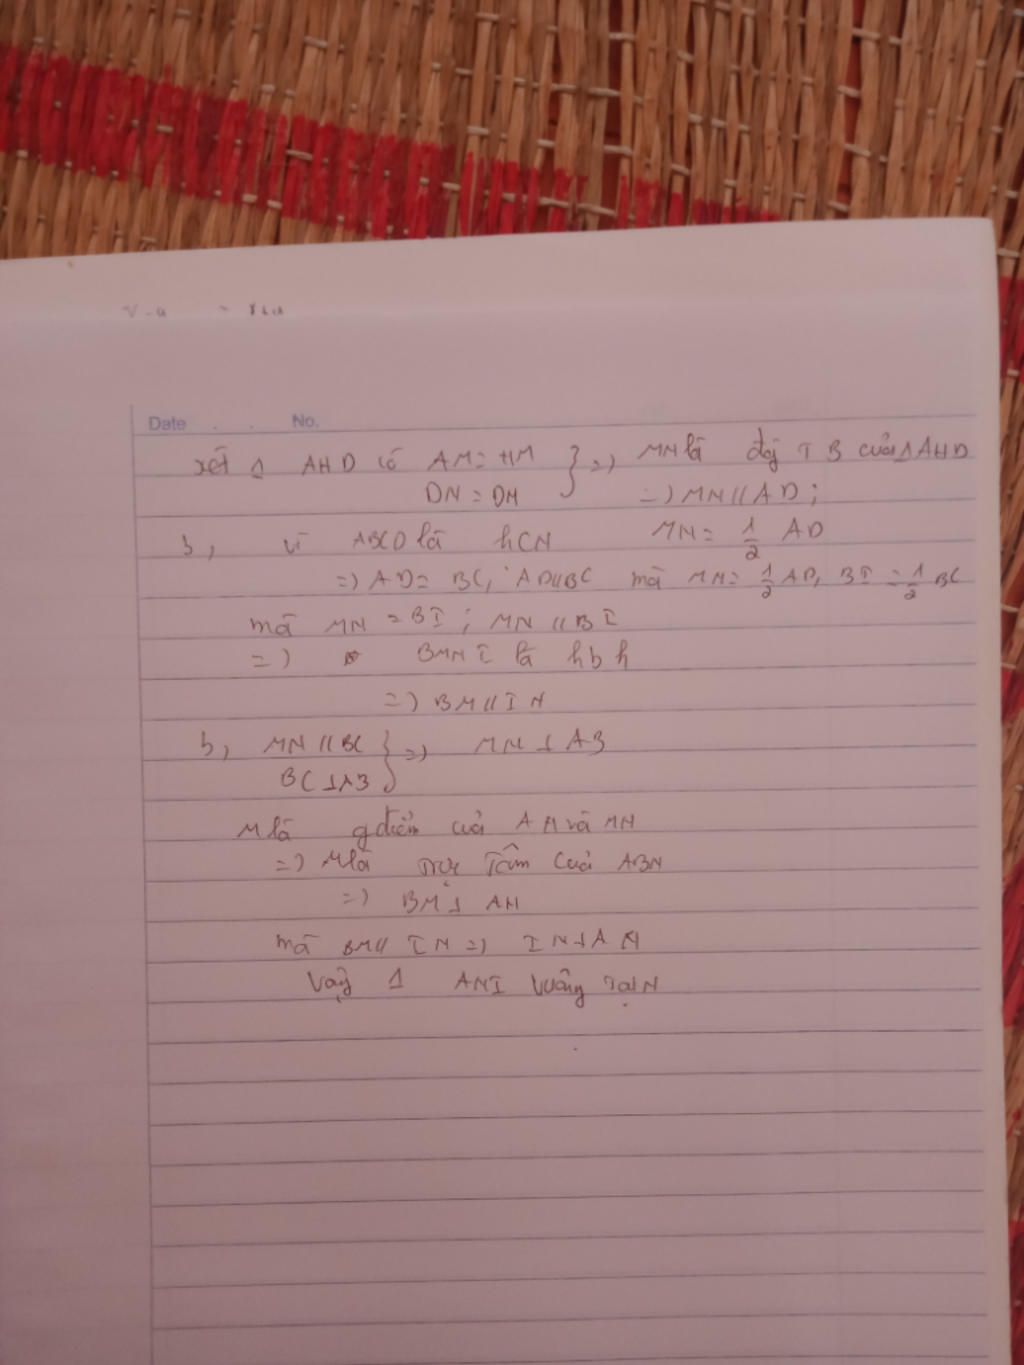 Date . . No.
xét Δ AHD có AM = HM } => MN là đg TB của Δ AHD
DN = DH => MN // AD ;
b, vì ABCD là hCN MN = 1/2 AD
=> AD = BC, AD // BC mà MN = 1/2 AD, BI = 1/2 BC
mà MN = BI ; MN // BI
=> BMNI là hbh
=> BM // IN
b, MN // BC } => MN ⊥ AB
BC ⊥ AB
M là gđiểm của AH và MN
=> M là trực tâm của ABN
=> BM ⊥ AN
mà BM // IN => IN ⊥ AN
Vậy Δ ANI vuông tại N